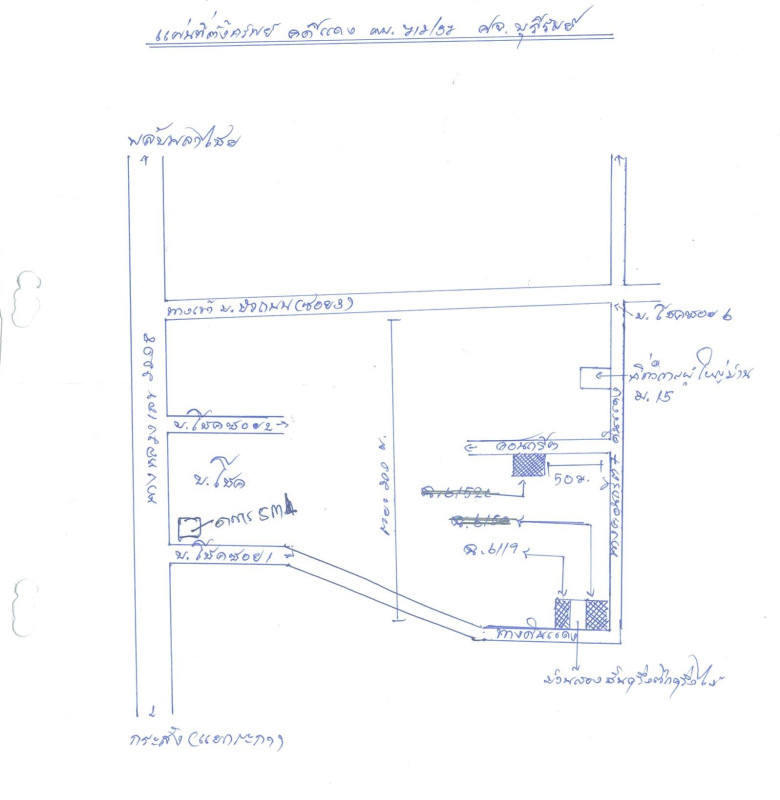 แผนที่ตั้งทรัพย์ คดีแดง ศจ. บุรีรัมย์
พลับพลาชัย
ทางเข้า บ. บัวถนน (ซอย 3)
บ. โชคซอย 6
ที่ทำการผู้ใหญ่บ้าน
ม. 15
ทางหลวงเลข 2208
บ. โชคซอย 2
คอนกรีต
บ. โชค
50 ม.
ทางคอนกรีต + ดินแดง
ราว 200 ม.
อาคาร
ฉ. 6119
บ. โชคซอย 1
ทางดินแดง
บ้านสองชั้นครึ่งตึกครึ่งไม้
กระสัง (แยกระกา)